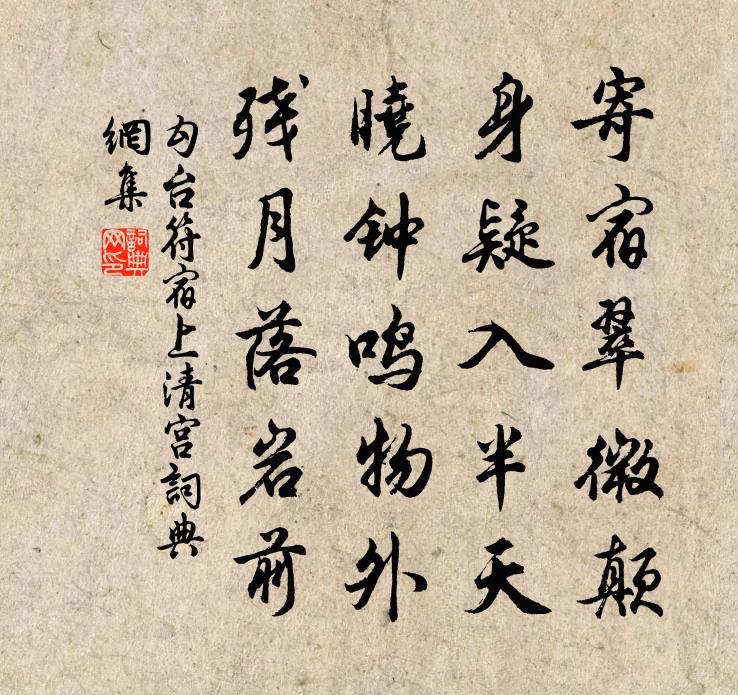 寄宿翠微颠
身疑入半天
曉钟鸣物外
残月落岩前
勾台符宿上清宫詞典
網集
詞典
网印